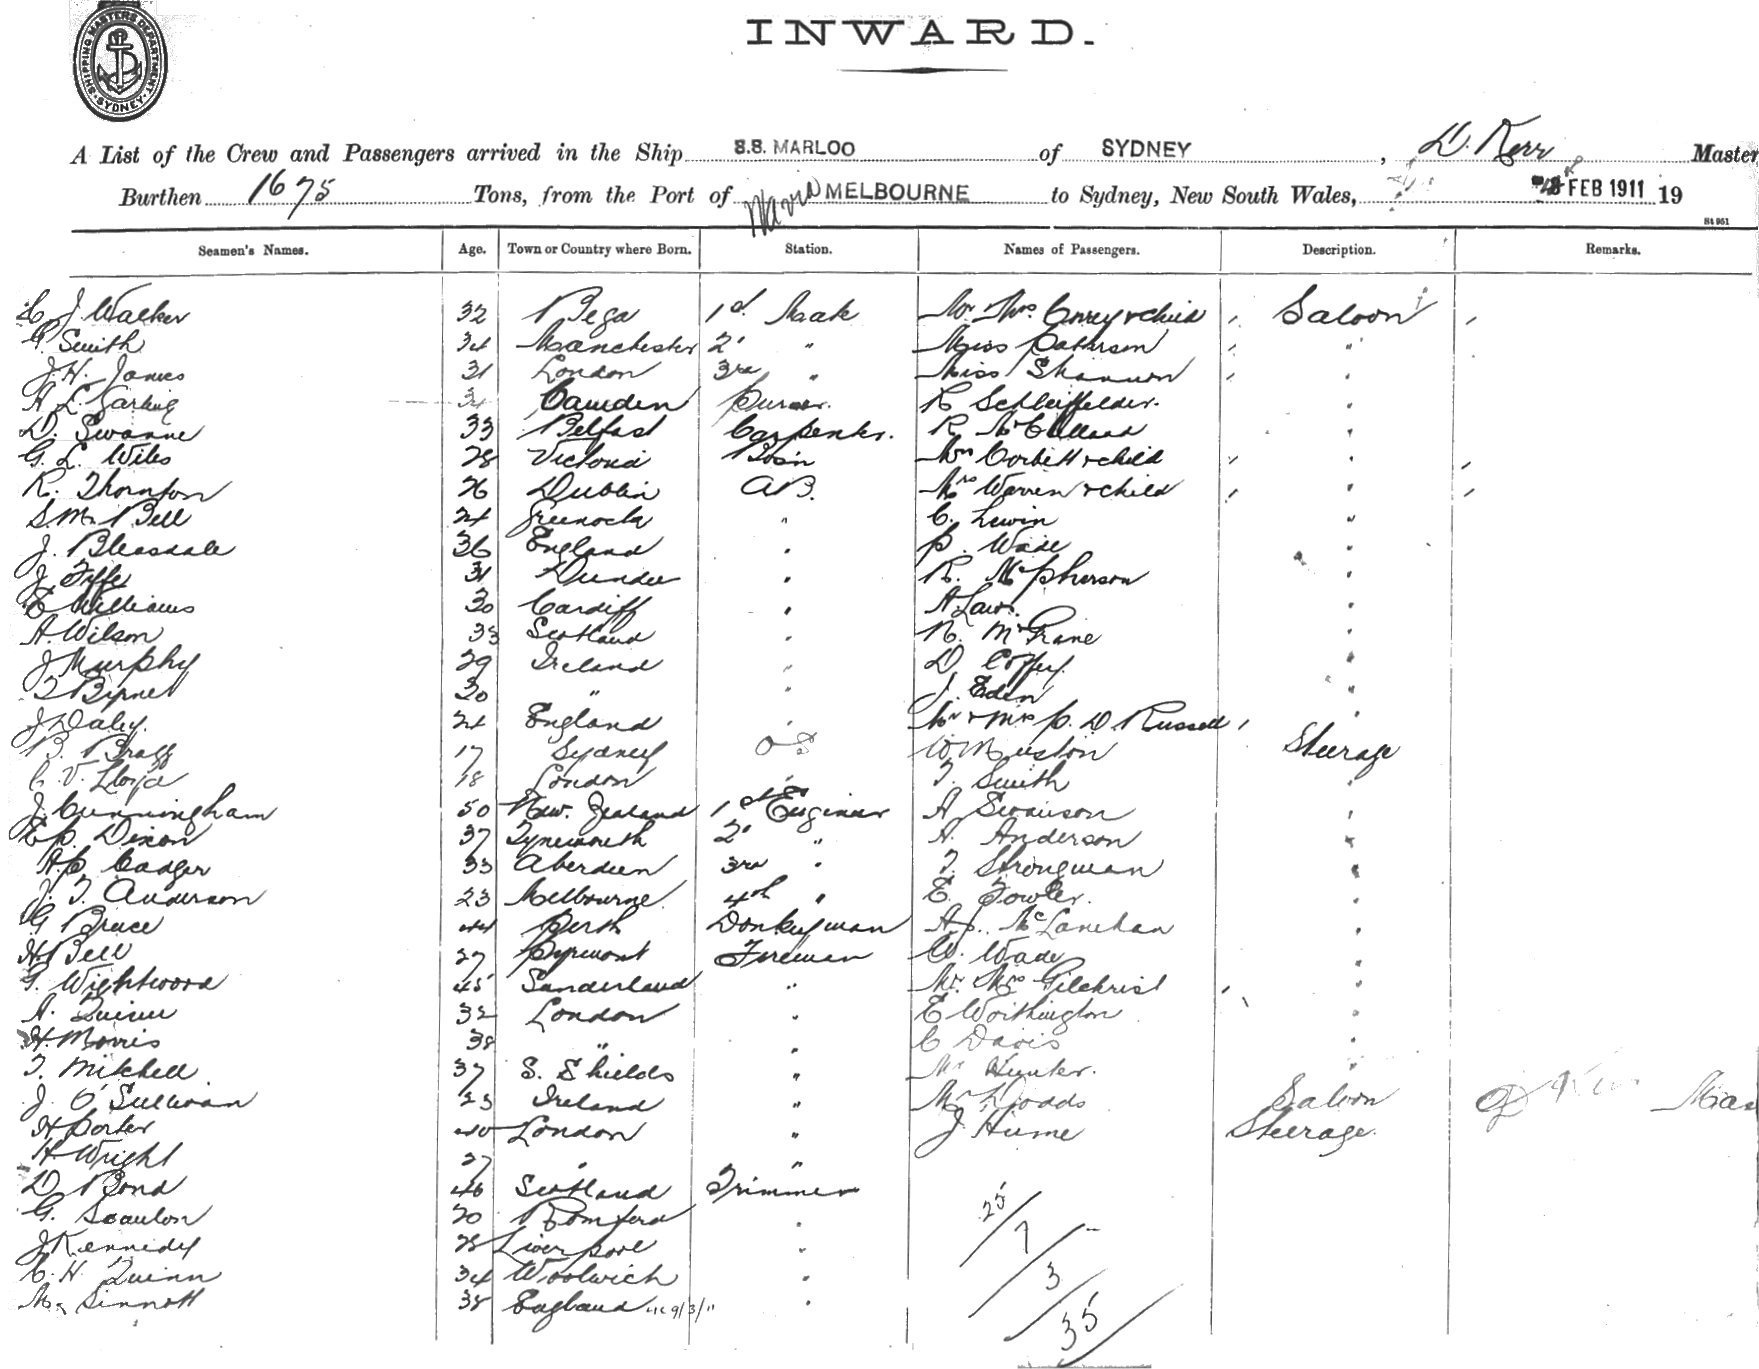 SHIPPING MASTERS DEPARTMENT. SYDNEY
INWARD.
A List of the Crew and Passengers arrived in the Ship S.S. MARLOO of SYDNEY, D. Kerr Master
Burthen 1675 Tons, from the Port of MELBOURNE to Sydney, New South Wales, FEB 1911 19
Seamen's Names. Age. Town or Country where Born. Station. Names of Passengers. Description. Remarks.
C. J. Walker 32 Bega 1st Mate Mr. Mrs. & child Saloon
G. Smith 34 Manchester 2 " Miss Patterson "
J. H. James 31 London 3rd " Miss Shannon "
H. L. 34 Camden Purser. R Schleiffelder. "
D. Swanne 33 Belfast Carpenter. R. "
G. L. Wiles 28 Victoria Bosn Mrs Corbett & child "
R. Thornton 26 Dublin A.B. Mrs Warren & child "
S. M. Bell 24 Greenock " C. Lewin "
J. Bleasdale 36 England " P. Wade "
J. Fyffe 31 Dundee " R. McPherson "
E Williams 30 Cardiff " A Law. "
A. Wilson 33 Scotland " N. McGrane "
J Murphy 29 Ireland " D. Coffey "
T Byrne 30 " " J. Eden "
J Daley. 24 England " Mr & Mrs P. D. Russell "
B. Bragg 17 Sydney O S W Muston Steerage
C. V. Lloyd 18 London " T. Smith "
J. Cunningham 50 New. Zealand 1st Engineer A Swanson "
E P. Dixon 37 Tynemouth 2 " A. Anderson "
A. P. Cadger 33 Aberdeen 3rd " T. Strongman "
J. T. Anderson 23 Melbourne 4th " E. Fowler. "
G Bruce 44 Perth Donkeyman A J. McLanehan "
H Bell 27 Pyrmont Fireman W. Wade "
G. Wightwood 45 Sunderland " Mr. Mrs Gilchrist "
A. Quinn 32 London " E Worthington "
H. Morris 38 " " C Davis "
T. Mitchell 37 S. Shields " Mr Hunter.
J. O'Sullivan 23 Ireland " Mr Dodds Saloon D Kerr Mas
H Porter 40 London " J. Hume Steerage.
H. Wright 27 " "
D Bond 46 Scotland Trimmer
G. Scanlon 20 Romford "
J Kennedy 28 Liverpool "
C. H. Quinn 34 Woolwich "
M. Sinnott 38 England 9/3/11 "
25
7
3
35